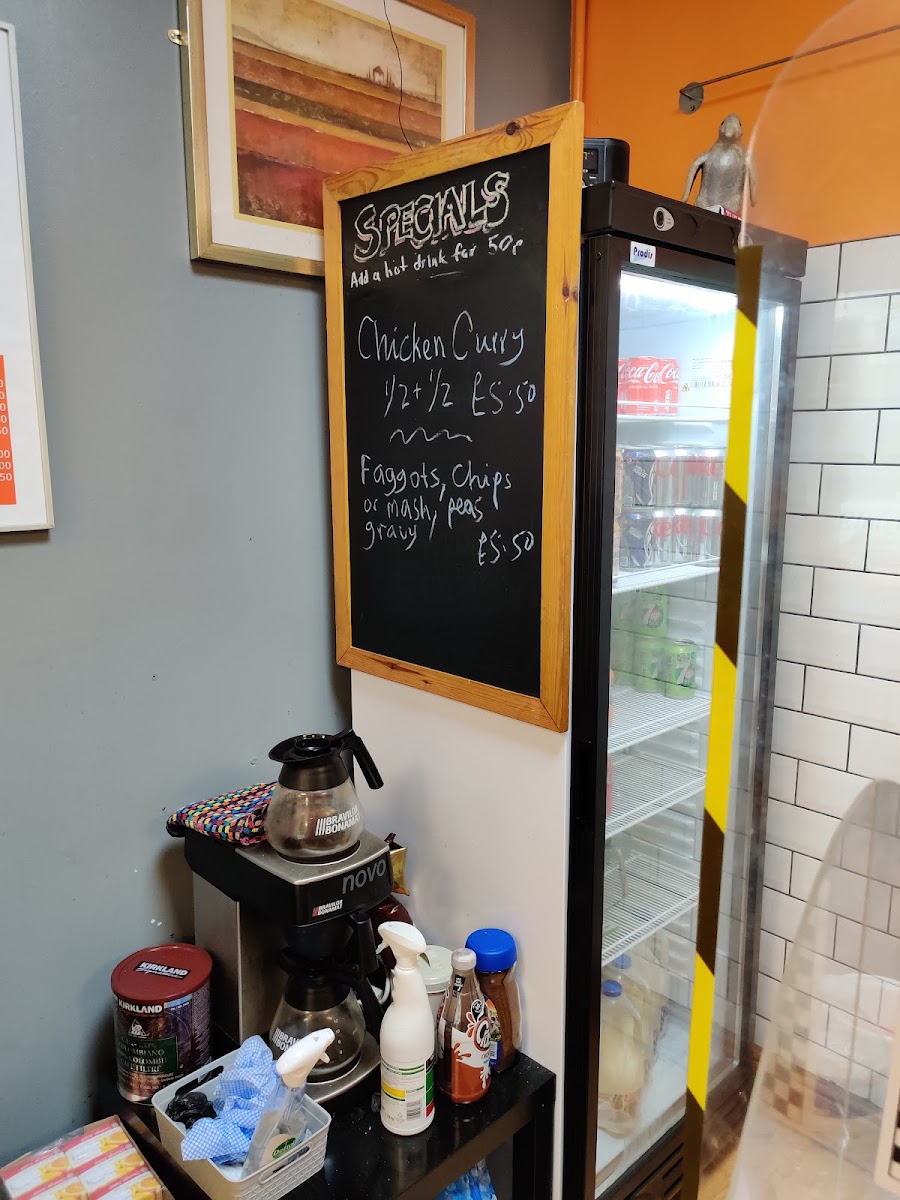 SPECIALS
Add a hot drink for 50p
Chicken Curry
1/2 + 1/2 £5.50
Faggots, Chips
or mash, peas
gravy
£5.50
Prodis
Coca-Cola
BRAVILOR
BONAMAT
novo
BRAVILOR
BONAMAT
KIRKLAND
KIRKLAND